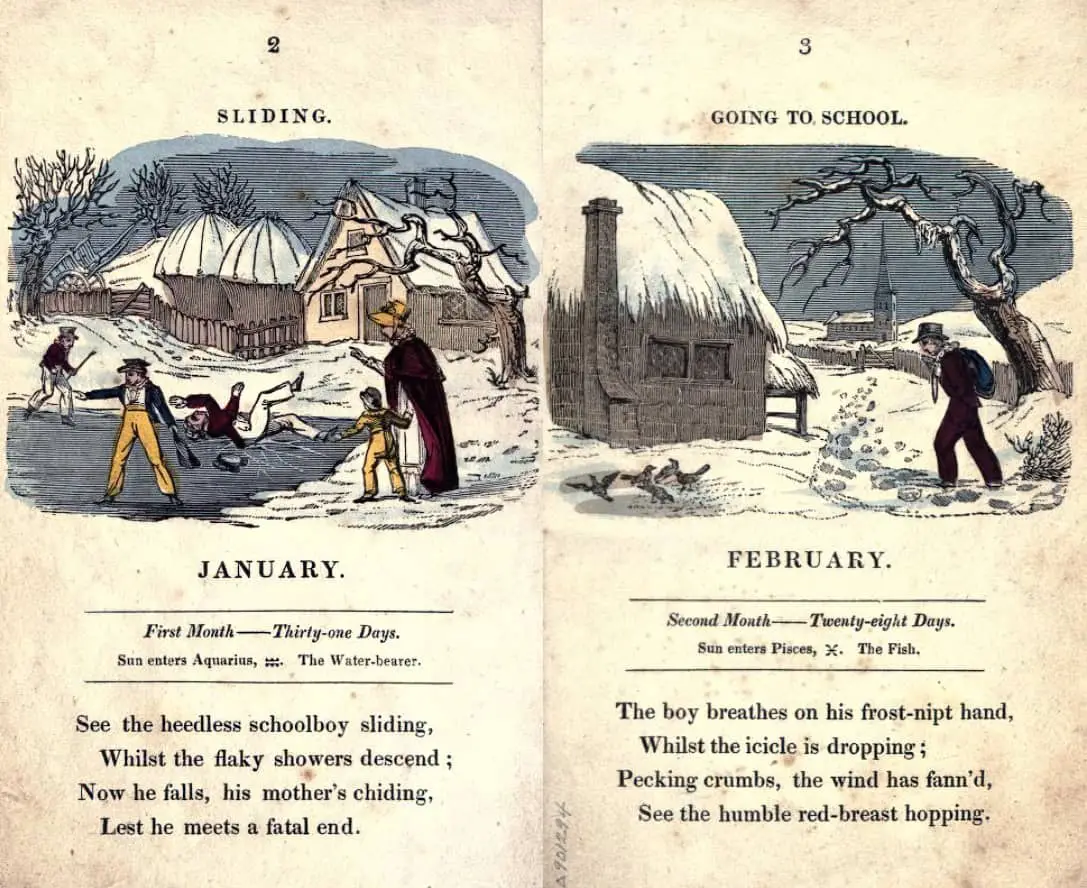 2
SLIDING.
JANUARY.
First Month——Thirty-one Days.
Sun enters Aquarius, ♒. The Water-bearer.
See the heedless schoolboy sliding,
Whilst the flaky showers descend;
Now he falls, his mother's chiding,
Lest he meets a fatal end.
3
GOING TO SCHOOL.
FEBRUARY.
Second Month——Twenty-eight Days.
Sun enters Pisces, ♓. The Fish.
The boy breathes on his frost-nipt hand,
Whilst the icicle is dropping;
Pecking crumbs, the wind has fann'd,
See the humble red-breast hopping.